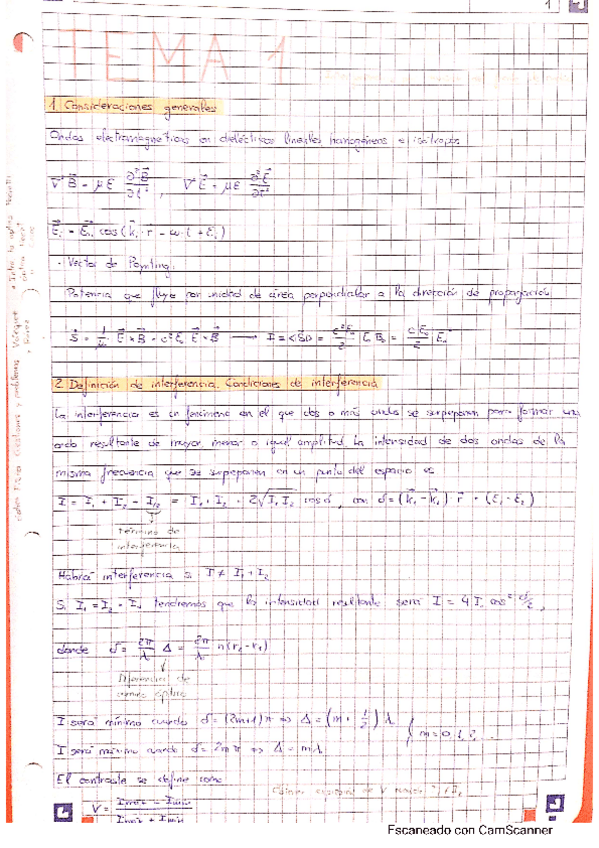 1
TEMA 1
1. Consideraciones generales
Ondas electromagnéticas en dieléctricos lineales homogéneos e isótropos
∇²B⃗ = με ∂²B⃗/∂t² , ∇²E⃗ = με ∂²E⃗/∂t²
E⃗₁ = E⃗₀₁ cos(k⃗₁·r⃗ - ω·t + ε₁)
· Vector de Poynting:
Potencia que fluye por unidad de área perpendicular a la dirección de propagación
2. Definición de interferencia. Condiciones de interferencia
La interferencia es un fenómeno en el que dos o más ondas se superponen para formar una
onda resultante de mayor, menor o igual amplitud. La intensidad de dos ondas de la
misma frecuencia que se superponen en un punto del espacio es
I = I₁ + I₂ + I₁₂ = I₁ + I₂ + 2√(I₁I₂) cos δ, con δ = (k⃗₁ - k⃗₂)·r⃗ + (ε₁ - ε₂)
término de
interferencia
Habrá interferencia si I ≠ I₁ + I₂
Si I₁ = I₂ = I₀ tendremos que la intensidad resultante será I = 4I₀ cos² δ/2,
donde δ = 2π/λ Δ = 2π/λ n(r₁ - r₂)
Diferencia de
camino óptico
I será mínimo cuando δ = (2m+1)π ⇔ Δ = (m + 1/2) λ
m = 0, 1, 2, ...
I será máximo cuando δ = 2mπ ⇔ Δ = mλ
El contraste se define como
V = (Imáx - Imín)/(Imáx + Imín)
Escaneado con CamScanner